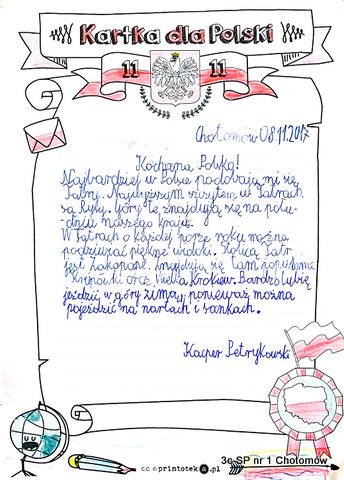 Kartka dla Polski
11 11
Chotomów 08.11.2017
Kochana Polsko!
Najbardziej w Polsce podobają mi się
Tatry. Najwyższym szczytem w Tatrach
są Rysy. Góry te znajdują się na połu-
dniu naszego kraju.
W Tatrach o każdej porze roku można
podziwiać piękne widoki. Stolicą Tatr
jest Zakopane. Znajdują się tam popularne
Krupówki oraz Wielka Krokiew. Bardzo lubię
jeździć w góry zimą, ponieważ można
pojeździć na nartach i sankach.
Kacper Petrykowski
printoteka.pl
3c SP nr 1 Chotomów